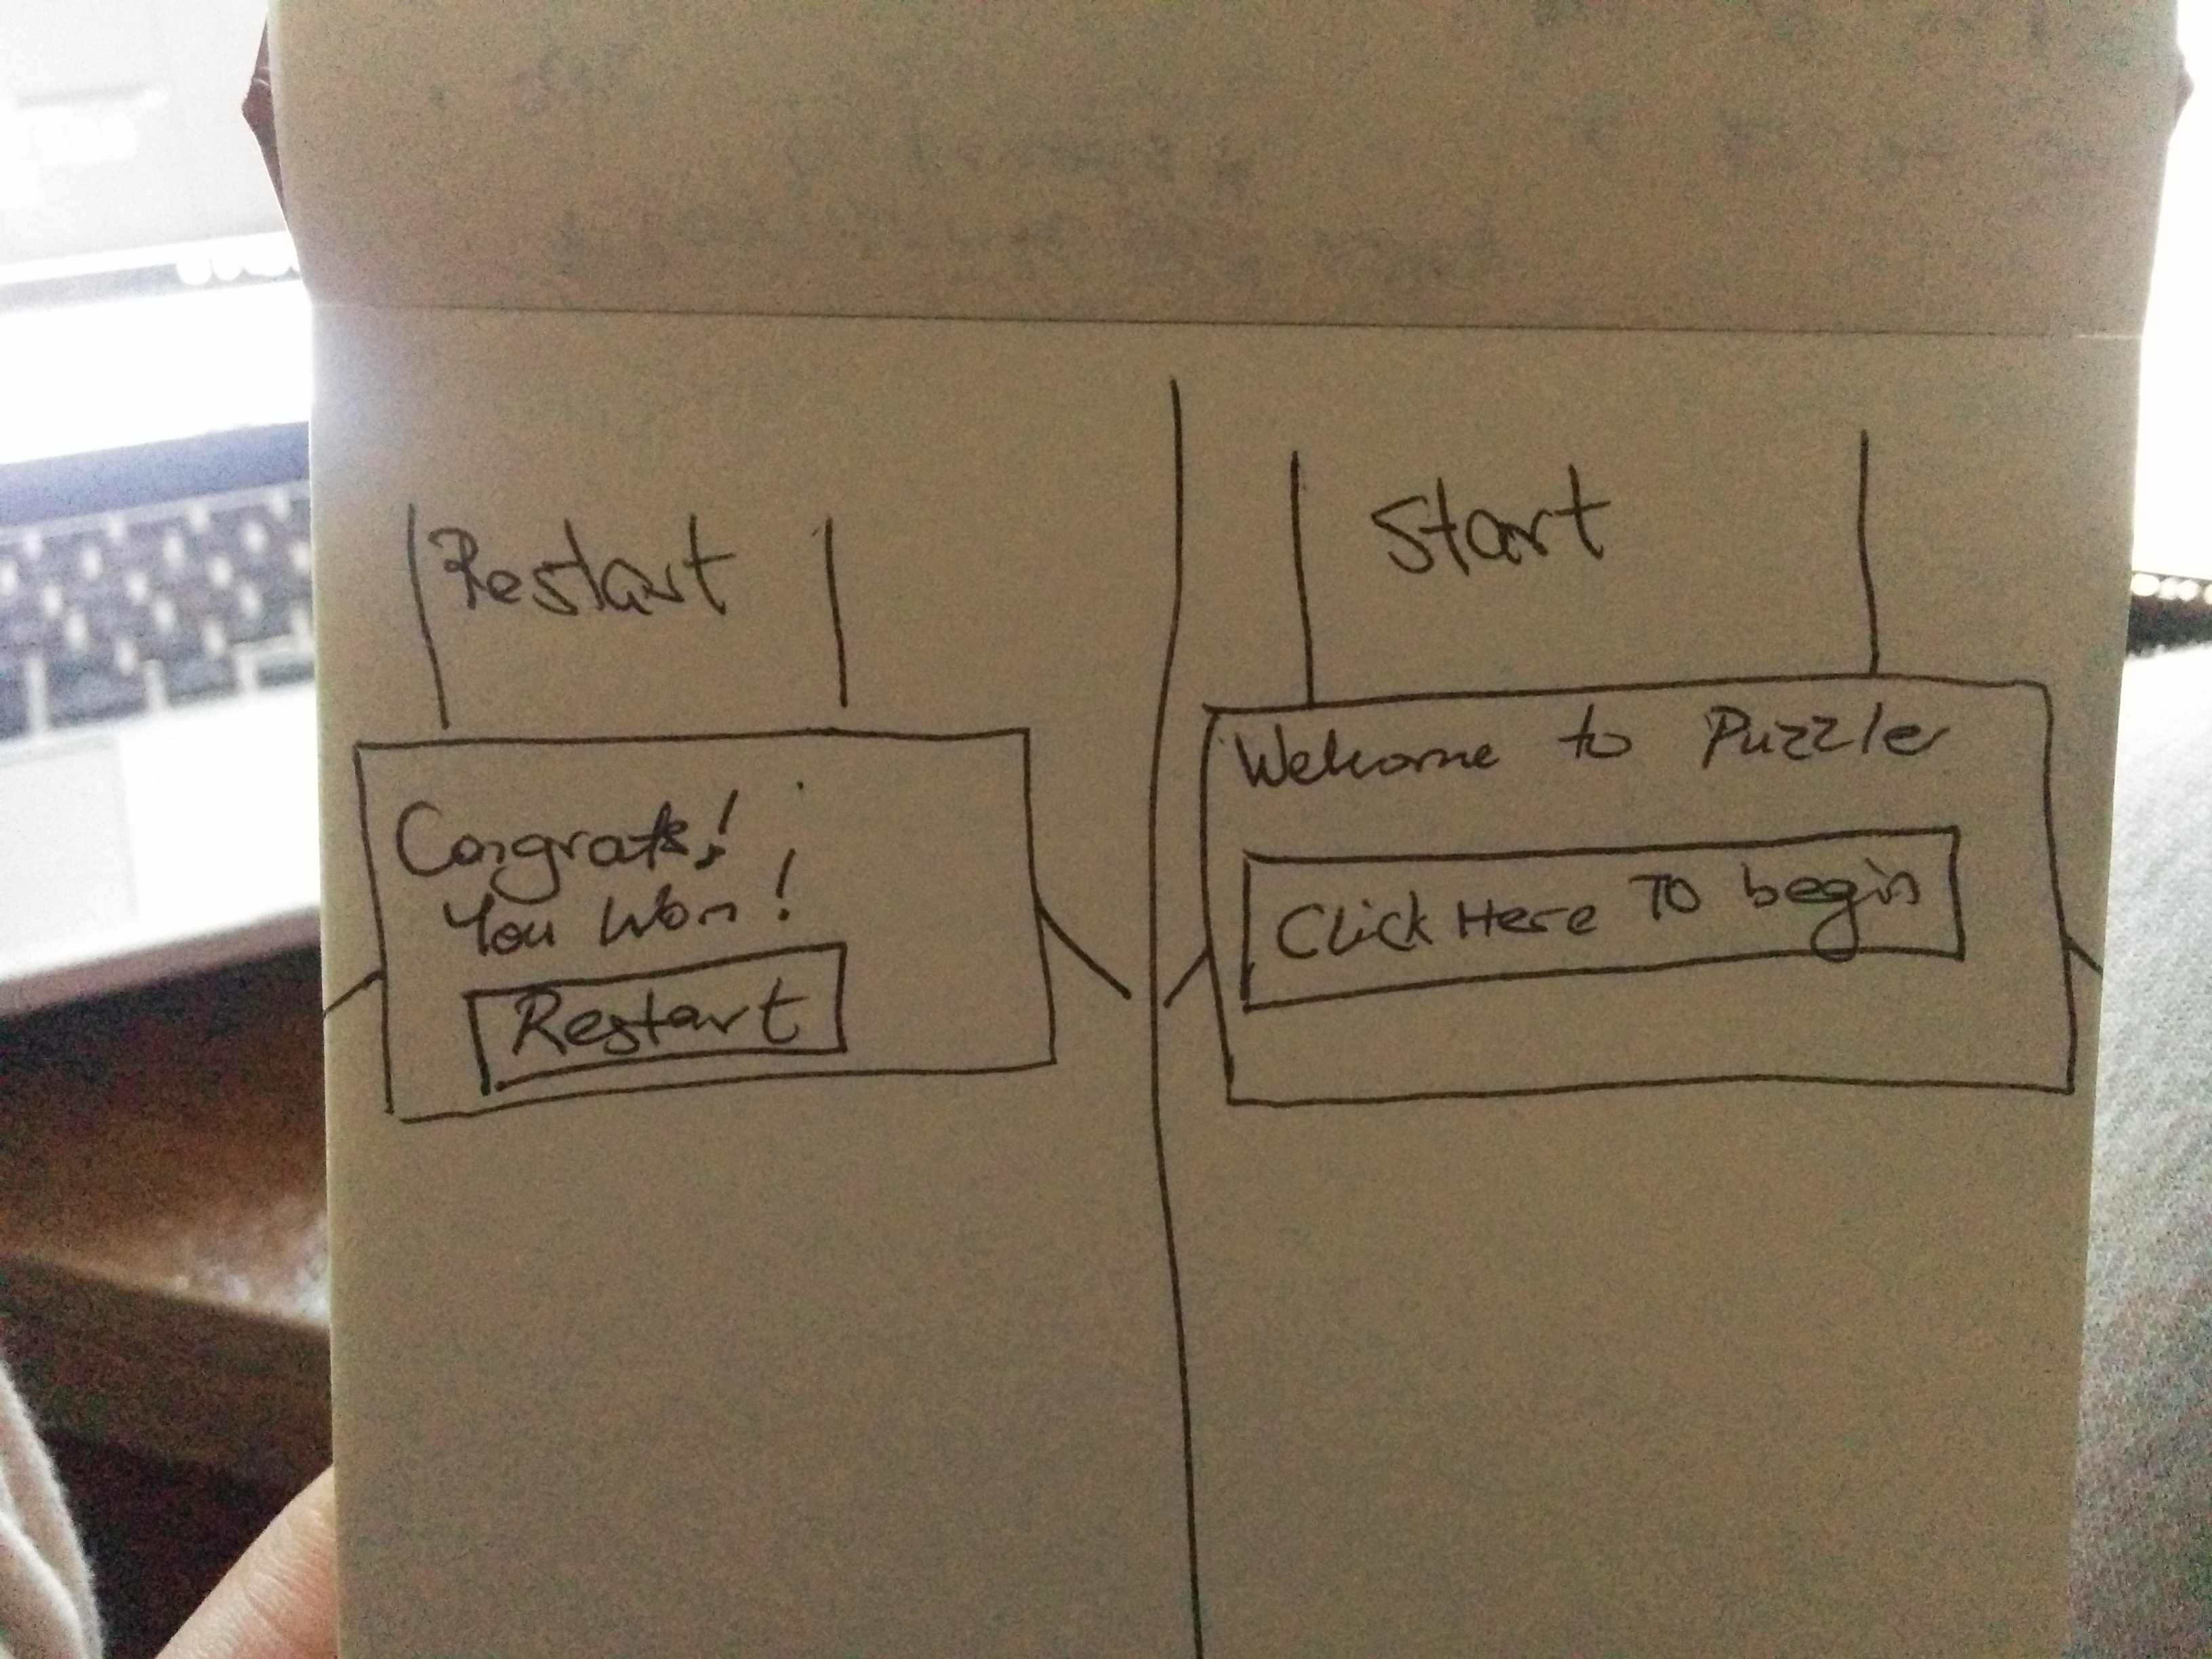 Restart
Congrats!
You Won!
Restart
Start
Welcome to Puzzler
Click Here To begin